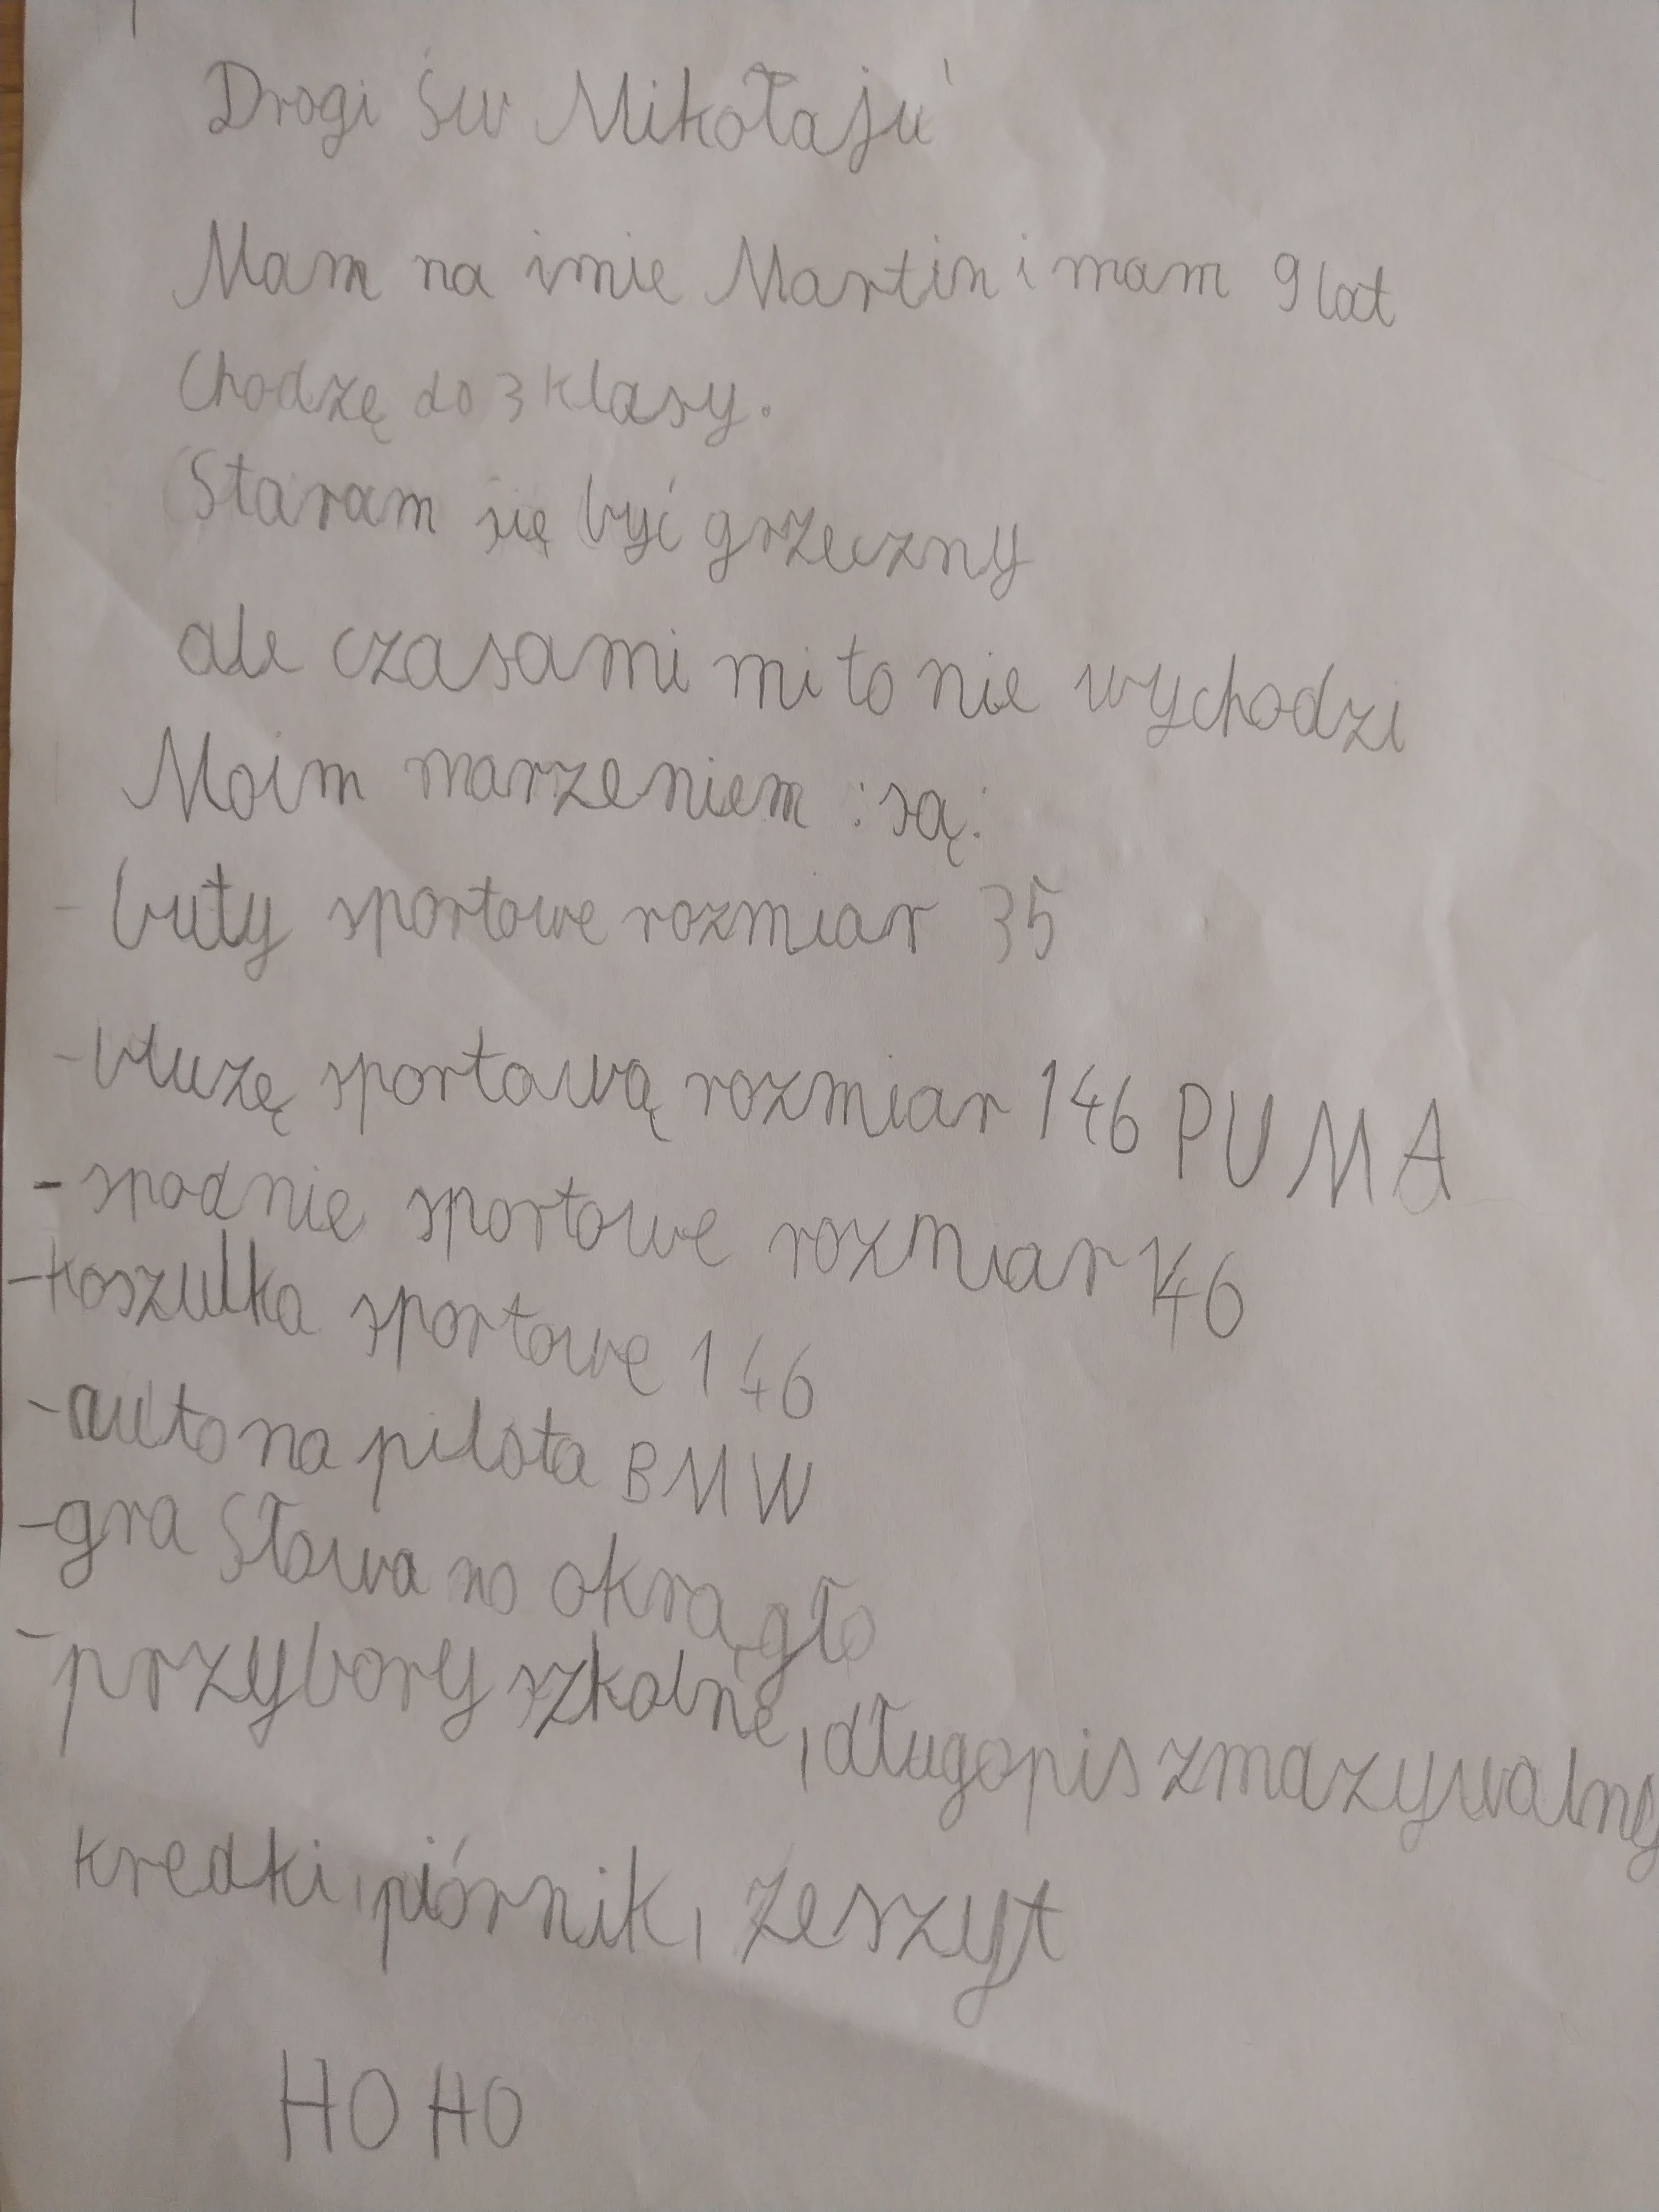 Drogi św Mikołaju
Mam na imie Martin i mam 9 lat
Chodzę do 3 klasy.
Staram się być grzeczny
ale czasami mi to nie wychodzi
Moim marzeniem : są:
- buty sportowe rozmiar 35
- bluzę sportową rozmiar 146 PUMA
- spodnie sportowe rozmiar 146
- koszulka sportowe 146
- auto na pilota BMW
- gra Słowa no okrągło
- przybory szkolne, długopis zmazywalny
kredki, piórnik, zeszyt
HO HO